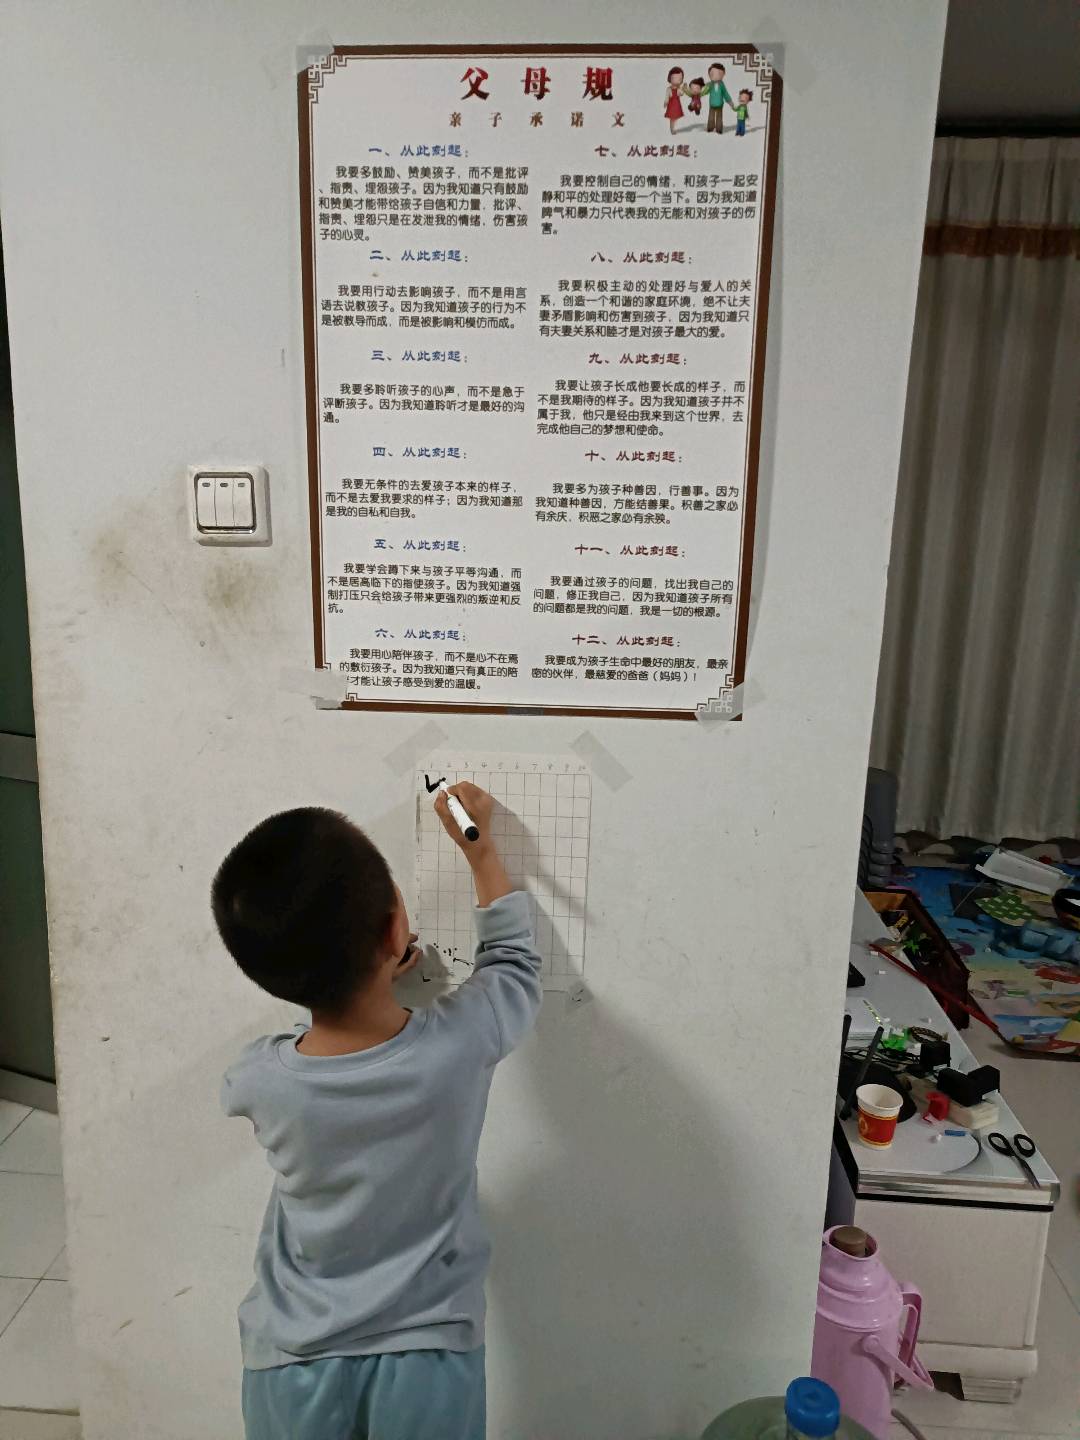 父母规
亲子承诺文
一、从此刻起：
我要多鼓励、赞美孩子，而不是批评
、指责、埋怨孩子。因为我知道只有鼓励
和赞美才能带给孩子自信和力量，批评、
指责、埋怨只是在发泄我的情绪，伤害孩
子的心灵。
二、从此刻起：
我要用行动去影响孩子，而不是用言
语去说教孩子。因为我知道孩子的行为不
是被教导而成，而是被影响和模仿而成。
三、从此刻起：
我要多聆听孩子的心声，而不是急于
评断孩子。因为我知道聆听才是最好的沟
通。
四、从此刻起：
我要无条件的去爱孩子本来的样子，
而不是去爱我要求的样子；因为我知道那
是我的自私和自我。
五、从此刻起：
我要学会蹲下来与孩子平等沟通，而
不是居高临下的指使孩子。因为我知道强
制打压只会给孩子带来更强烈的叛逆和反
抗。
六、从此刻起：
我要用心陪伴孩子，而不是心不在焉
的敷衍孩子。因为我知道只有真正的陪
伴才能让孩子感受到爱的温暖。
七、从此刻起：
我要控制自己的情绪，和孩子一起安
静和平的处理好每一个当下。因为我知道
脾气和暴力只代表我的无能和对孩子的伤
害。
八、从此刻起：
我要积极主动的处理好与爱人的关
系，创造一个和谐的家庭环境，绝不让夫
妻矛盾影响和伤害到孩子，因为我知道只
有夫妻关系和睦才是对孩子最大的爱。
九、从此刻起：
我要让孩子长成他要长成的样子，而
不是我期待的样子。因为我知道孩子并不
属于我，他只是经由我来到这个世界，去
完成他自己的梦想和使命。
十、从此刻起：
我要多为孩子种善因，行善事。因为
我知道种善因，方能结善果。积善之家必
有余庆，积恶之家必有余殃。
十一、从此刻起：
我要通过孩子的问题，找出我自己的
问题，修正我自己，因为我知道孩子所有
的问题都是我的问题，我是一切的根源。
十二、从此刻起：
我要成为孩子生命中最好的朋友，最亲
密的伙伴，最慈爱的爸爸（妈妈）！
1 2 3 4 5 6 7 8 9 10